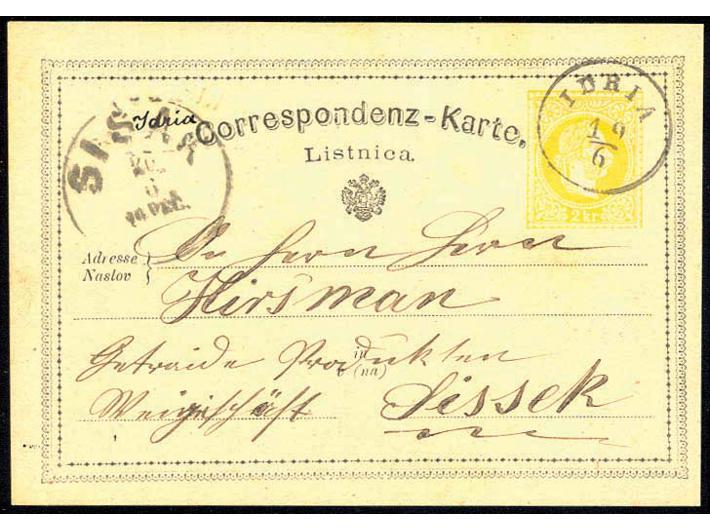 Idria
Correspondenz-Karte.
Listnica.
IDRIA
19
6
SISSEK
2 kr.
Adresse
Naslov
Herrn
Hirsman
Getraide Produkten
in
(na)
Sissek